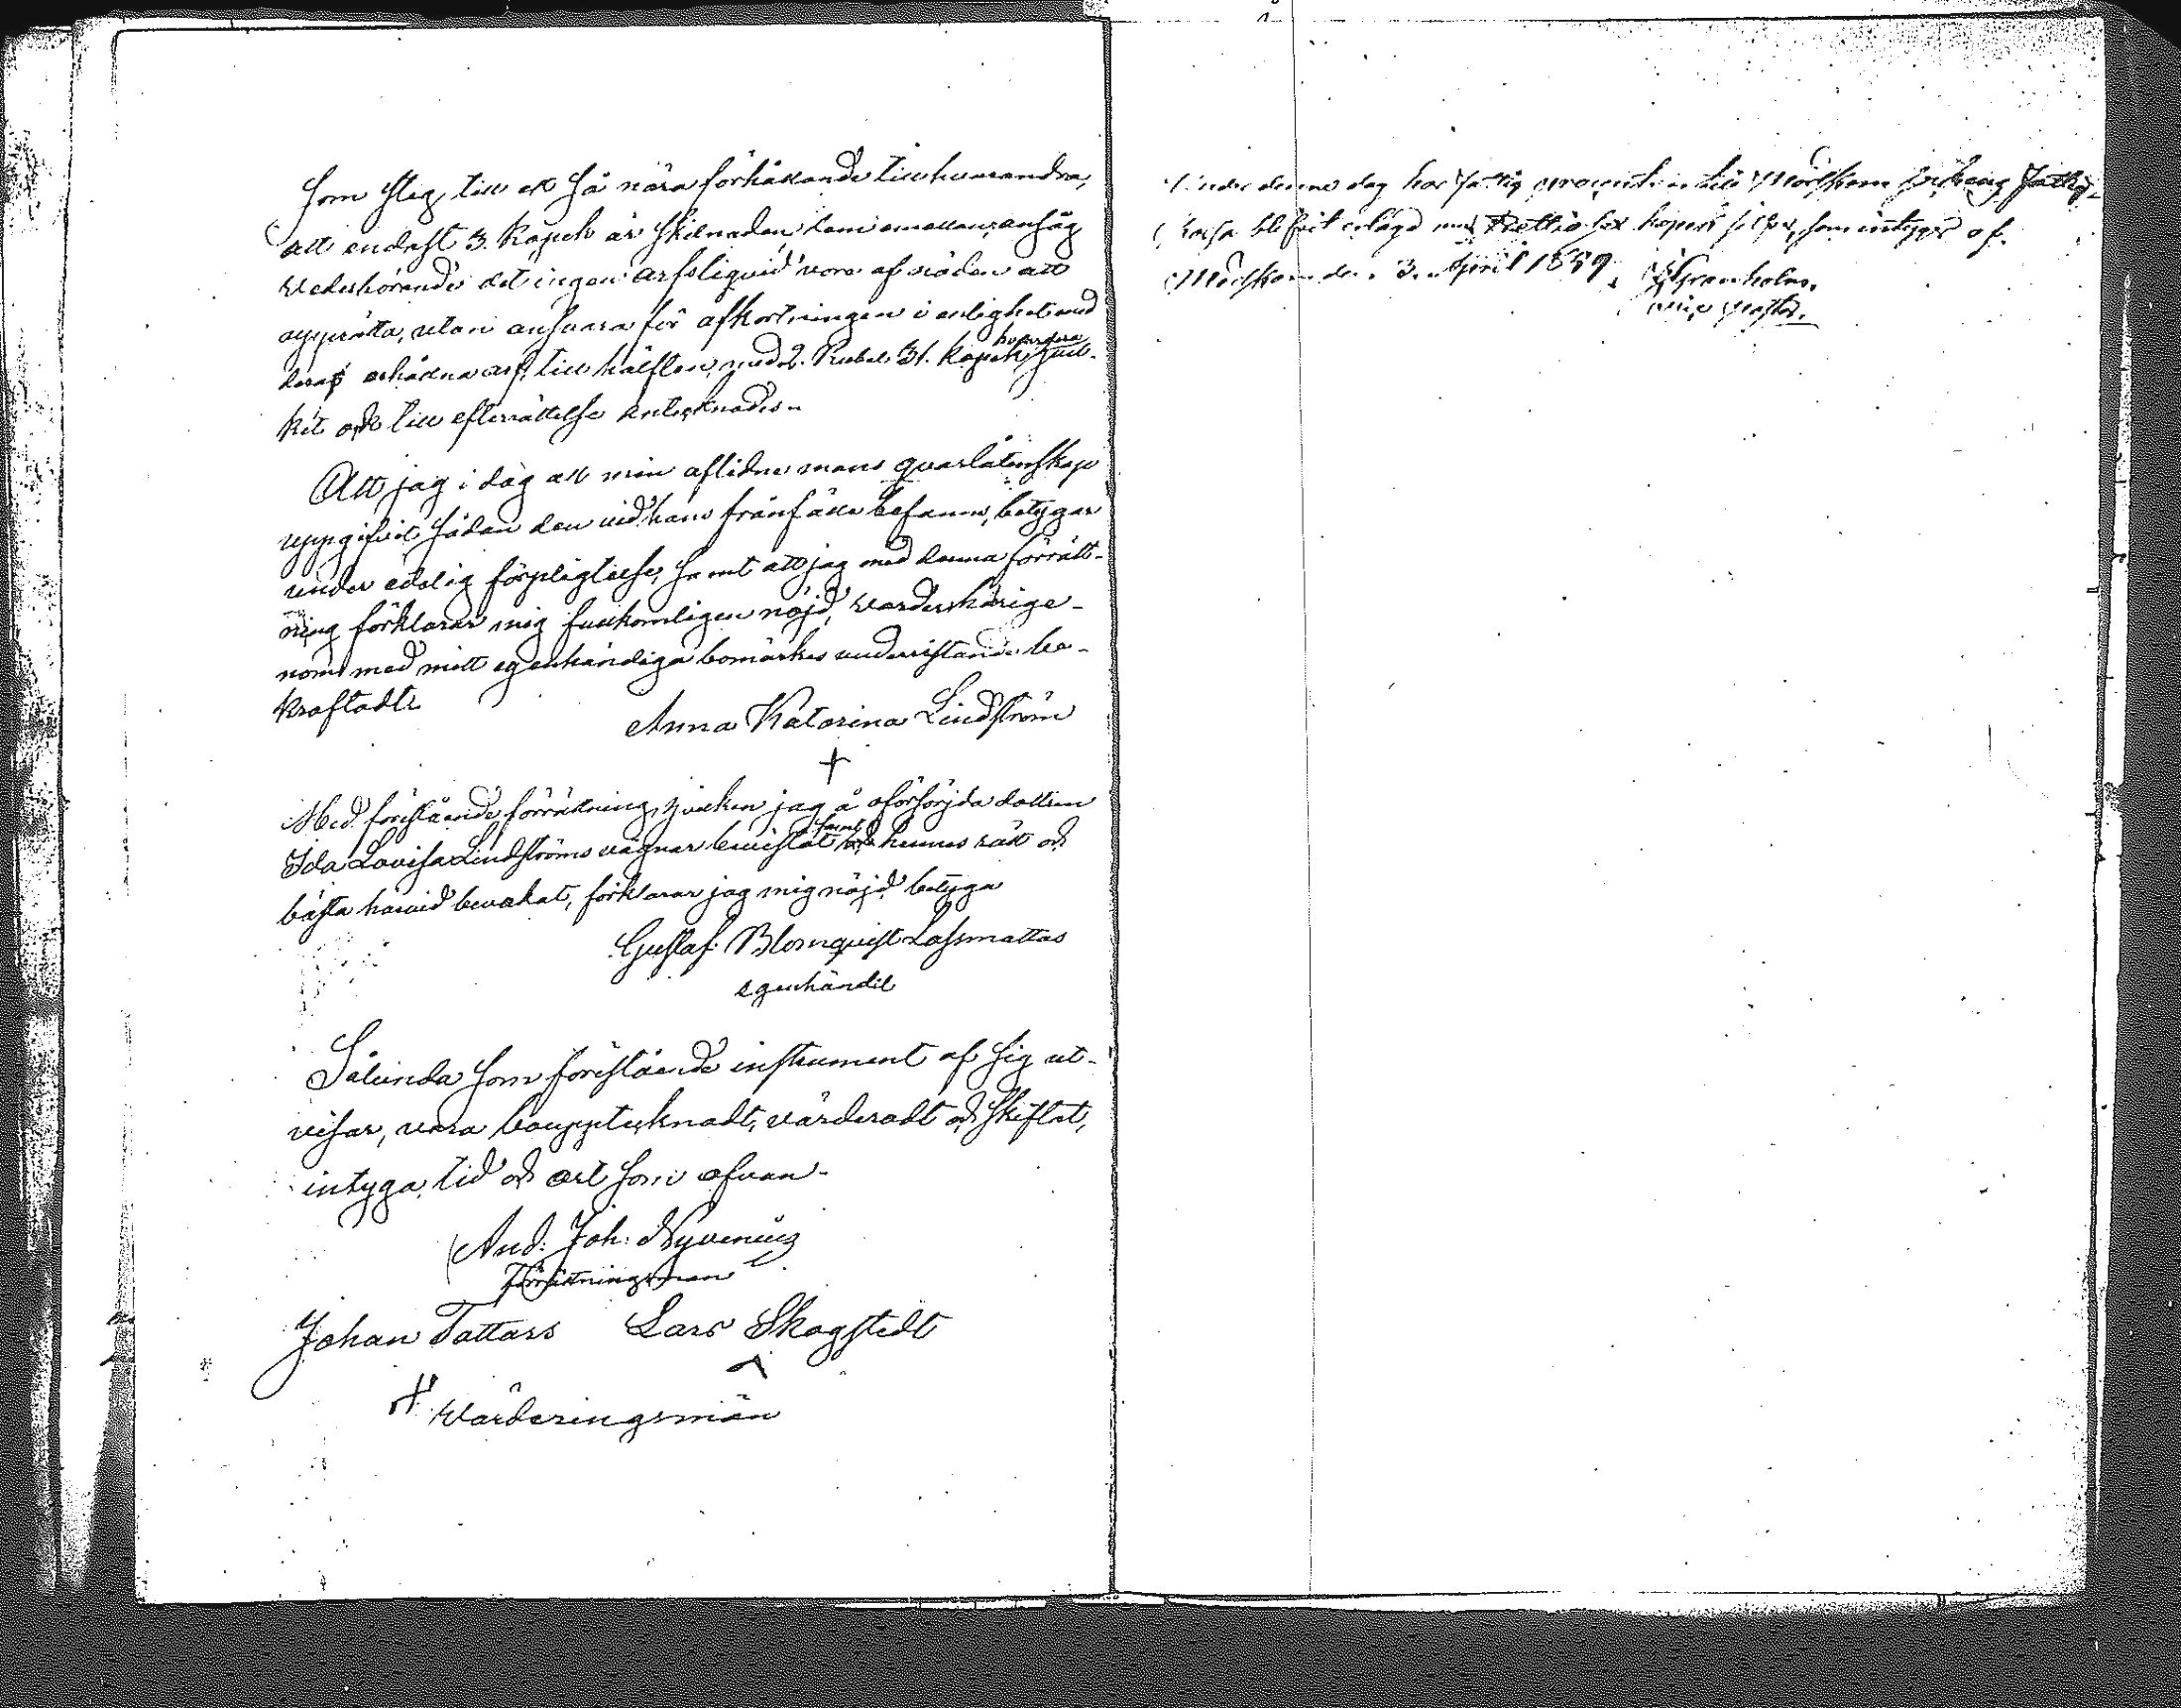 som steg till ett så nära förhållande till hvarandra,
att endast 3. kopek är skilnaden dem emellan, ansåg
vederhörande det ingen arfsliqvid vore af nöden att
upprätta, utan ansvara för afkortningen i enlighet med
deras erhållna arf, till hälften med 2. Rubel 31. kopek hvardera,
ket ock till efterrättelse antecknades.
Att jag i dag all min aflidne mans qvarlåtenskap
uppgifvit sådan den vid hans frånfälle befanns, betygar
under edelig förpligtelse, samt att jag med denna förrätt-
ning förklarar mig fullkomligen nöjd, varder härige-
nom med mitt egenhändiga bomärkes underristande be-
kräftadt.
Anna Katarina Lindström
Med föreståënde förrättning, hvilken jag å oförsörjda dottren
Ida Lovisa Lindströms vägnar bevistat samt hennes rätt och
bästa härvid bevakat, förklarar jag mig nöjd, betyga
Gustaf Blomqvist Lassmattas
egenhändit
Sålunda som föreståënde instrument af sig ut-
visar, vara bouppteknadt, värderadt och skiftat,
intyga, tid och ort som ofvan.
And: Joh: Nyvening
Förrättningsman
Johan Tattars Lars Skogstedt
Värderingsmän
Under denne dag har fattig procenten till Mörskom församling fattig-
kassa blifvit erlagd med Trettio sex kopek silfver, som intygas af.
Mörskom den 3. April 1859. Granholm.
vice pastor.